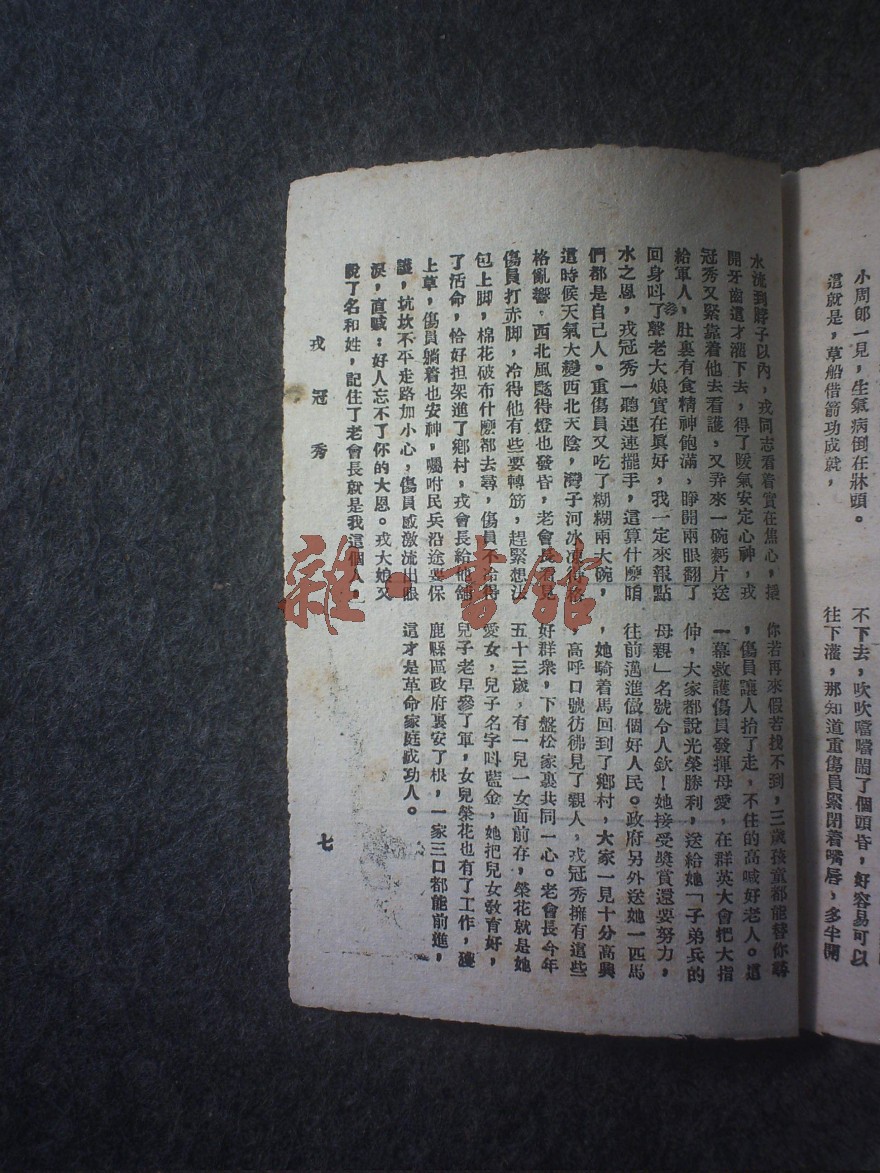 小周郎一見，生氣病倒在牀頭。
這就是，草船借箭功成就，
不下去，吹吹噹噹鬧了個頭昏，好容易可以
往下灌，那知道重傷員緊閉着嘴唇，多半開
水流到脖子以內，戎同志看着實在焦心，撬
開牙齒這才灌下去，得了暖氣安定心神，戎
冠秀又緊靠着他去看護，又弄來一碗麪片送
給軍人，肚裏有食精神飽滿，睜開兩眼翻了
回身叫了聲老大娘實在真好，我一定來報點
水之恩，戎冠秀一聽連連擺手，這算什麽咱
們都是自己人。重傷員又吃了糊糊兩大碗，
這時候天氣大變西北天陰，灣子河冰凍得格
格亂響，西北風颳得燈也發昏，老會長看見
傷員打赤脚，冷得他有些要轉筋，趕緊想法
包上脚，棉花破布什麽都去尋，傷員不冷得
了活命，恰好担架進了鄉村，戎會長給他舖
上草，傷員躺着也安神，囑咐民兵沿途要保
護，坑坎不平走路加小心，傷員感激流出眼
淚，直喊：好人忘不了你的大恩。戎大娘又
說了名和姓，記住了老會長就是我這個人，
你若再來假若找不到，三歲孩童都能替你尋
，傷員讓人抬了走，不住的高喊好老人。這
一幕救護傷員發揮母愛，在群英大會把大指
伸，大家都說光榮勝利，送給她「子弟兵的
母親」名號令人欽！她接受獎賞還要努力，
往前邁進做個好人民。政府另外送她一匹馬
，她騎着馬回到了鄉村，大家一見十分高興
，高呼口號彷彿見了親人，戎冠秀擁有這些
好群衆，下盤松家裏共同一心。老會長今年
五十三歲，有一兒一女面前存，榮花就是她
愛女，兒子名字叫藍金，她把兒女敎育好，
兒子老早參了軍，女兒榮花也有了工作，獲
鹿縣區政府裏安了根，一家三口都能前進，
這才是革命家庭成功人。
戎冠秀
七
雜·書館